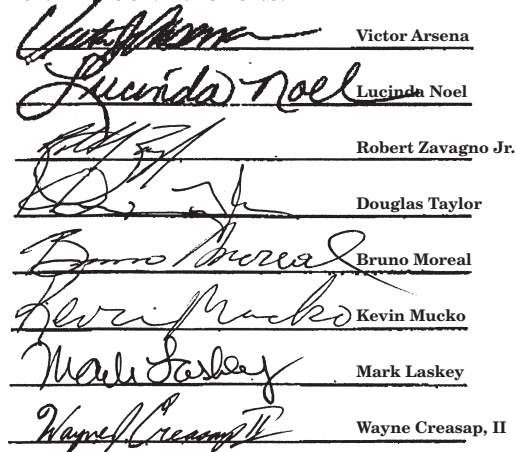 Victor Arsena Victor Arsena
Lucinda Noel Lucinda Noel
Robert Zavagno Jr.
Douglas Taylor
Bruno Moreal Bruno Moreal
Kevin Mucko Kevin Mucko
Mark Laskey Mark Laskey
Wayne J. Creasap II Wayne Creasap, II